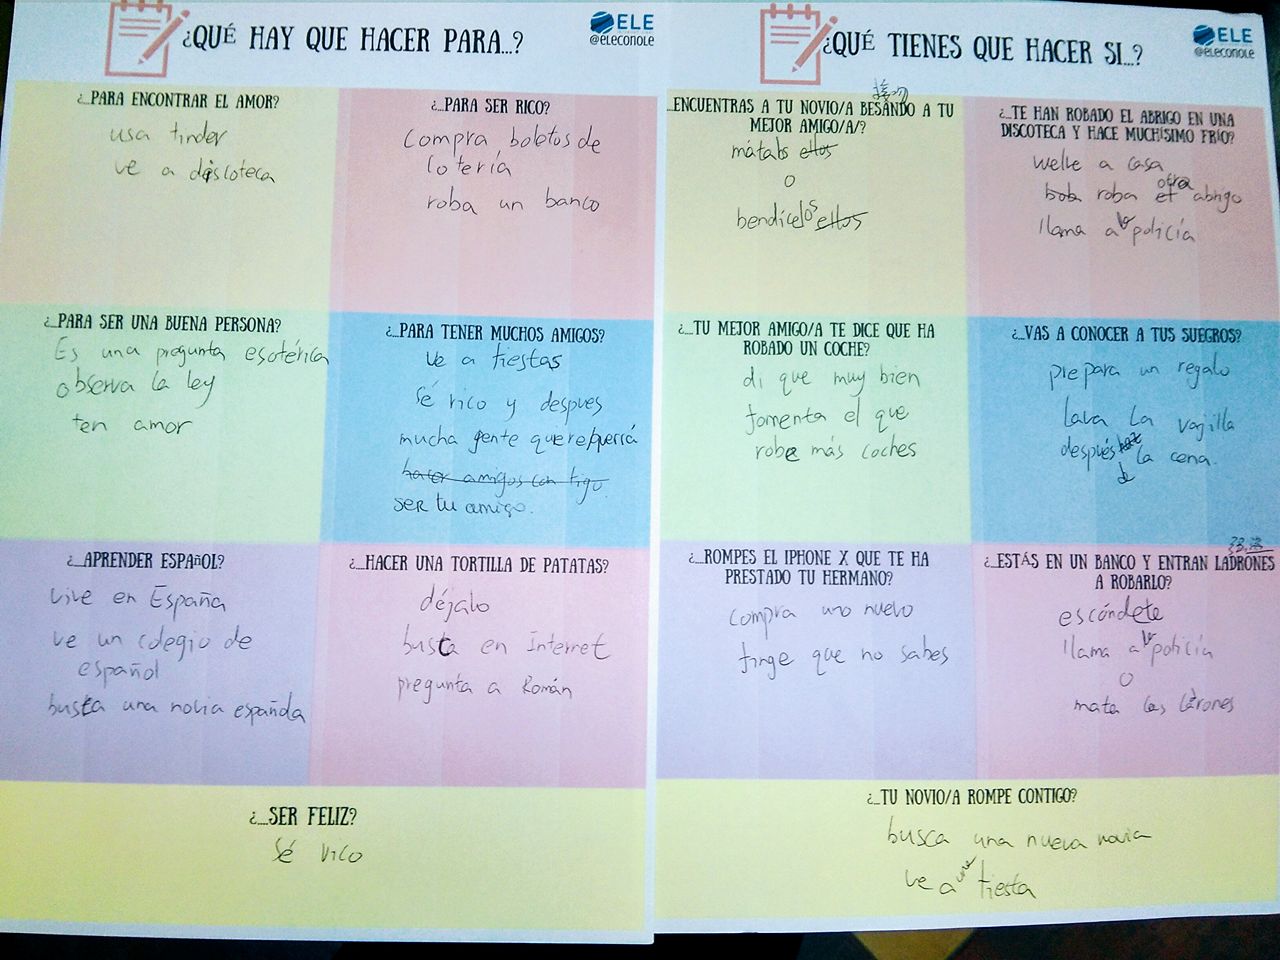 ¿QUÉ HAY QUE HACER PARA...?
ELE
@ELECONOLE
¿...PARA ENCONTRAR EL AMOR?
usa tinder
ve a discoteca
¿...PARA SER RICO?
compra boletos de
lotería
roba un banco
¿...PARA SER UNA BUENA PERSONA?
Es una pregunta esotérica
observa la ley
ten amor
¿...PARA TENER MUCHOS AMIGOS?
ve a fiestas
sé rico y despues
mucha gente quiere/querrá
hacer amigos con tigo
ser tu amigo.
¿...APRENDER ESPAÑOL?
vive en España
ve un colegio de
español
busca una novia española
¿...HACER UNA TORTILLA DE PATATAS?
déjalo
busca en Internet
pregunta a Román
¿...SER FELIZ?
sé rico
¿QUÉ TIENES QUE HACER SI...?
ELE
@ELECONOLE
...ENCUENTRAS A TU NOVIO/A BESANDO A TU
MEJOR AMIGO/A/?
mátalos ellos
o
bendícelos ellos
¿...TE HAN ROBADO EL ABRIGO EN UNA
DISCOTECA Y HACE MUCHÍSIMO FRÍO?
welve a casa
roba el otro abrigo
llama a la policía
¿...TU MEJOR AMIGO/A TE DICE QUE HA
ROBADO UN COCHE?
di que muy bien
fomenta el que
robe más coches
¿...VAS A CONOCER A TUS SUEGROS?
prepara un regalo
lava la vajilla
después de la cena.
¿...ROMPES EL IPHONE X QUE TE HA
PRESTADO TU HERMANO?
compra uno nuevo
finge que no sabes
¿...ESTÁS EN UN BANCO Y ENTRAN LADRONES
A ROBARLO?
escóndete
llama a la policía
o
mata los ladrones
¿...TU NOVIO/A ROMPE CONTIGO?
busca una nueva novia
ve a una fiesta